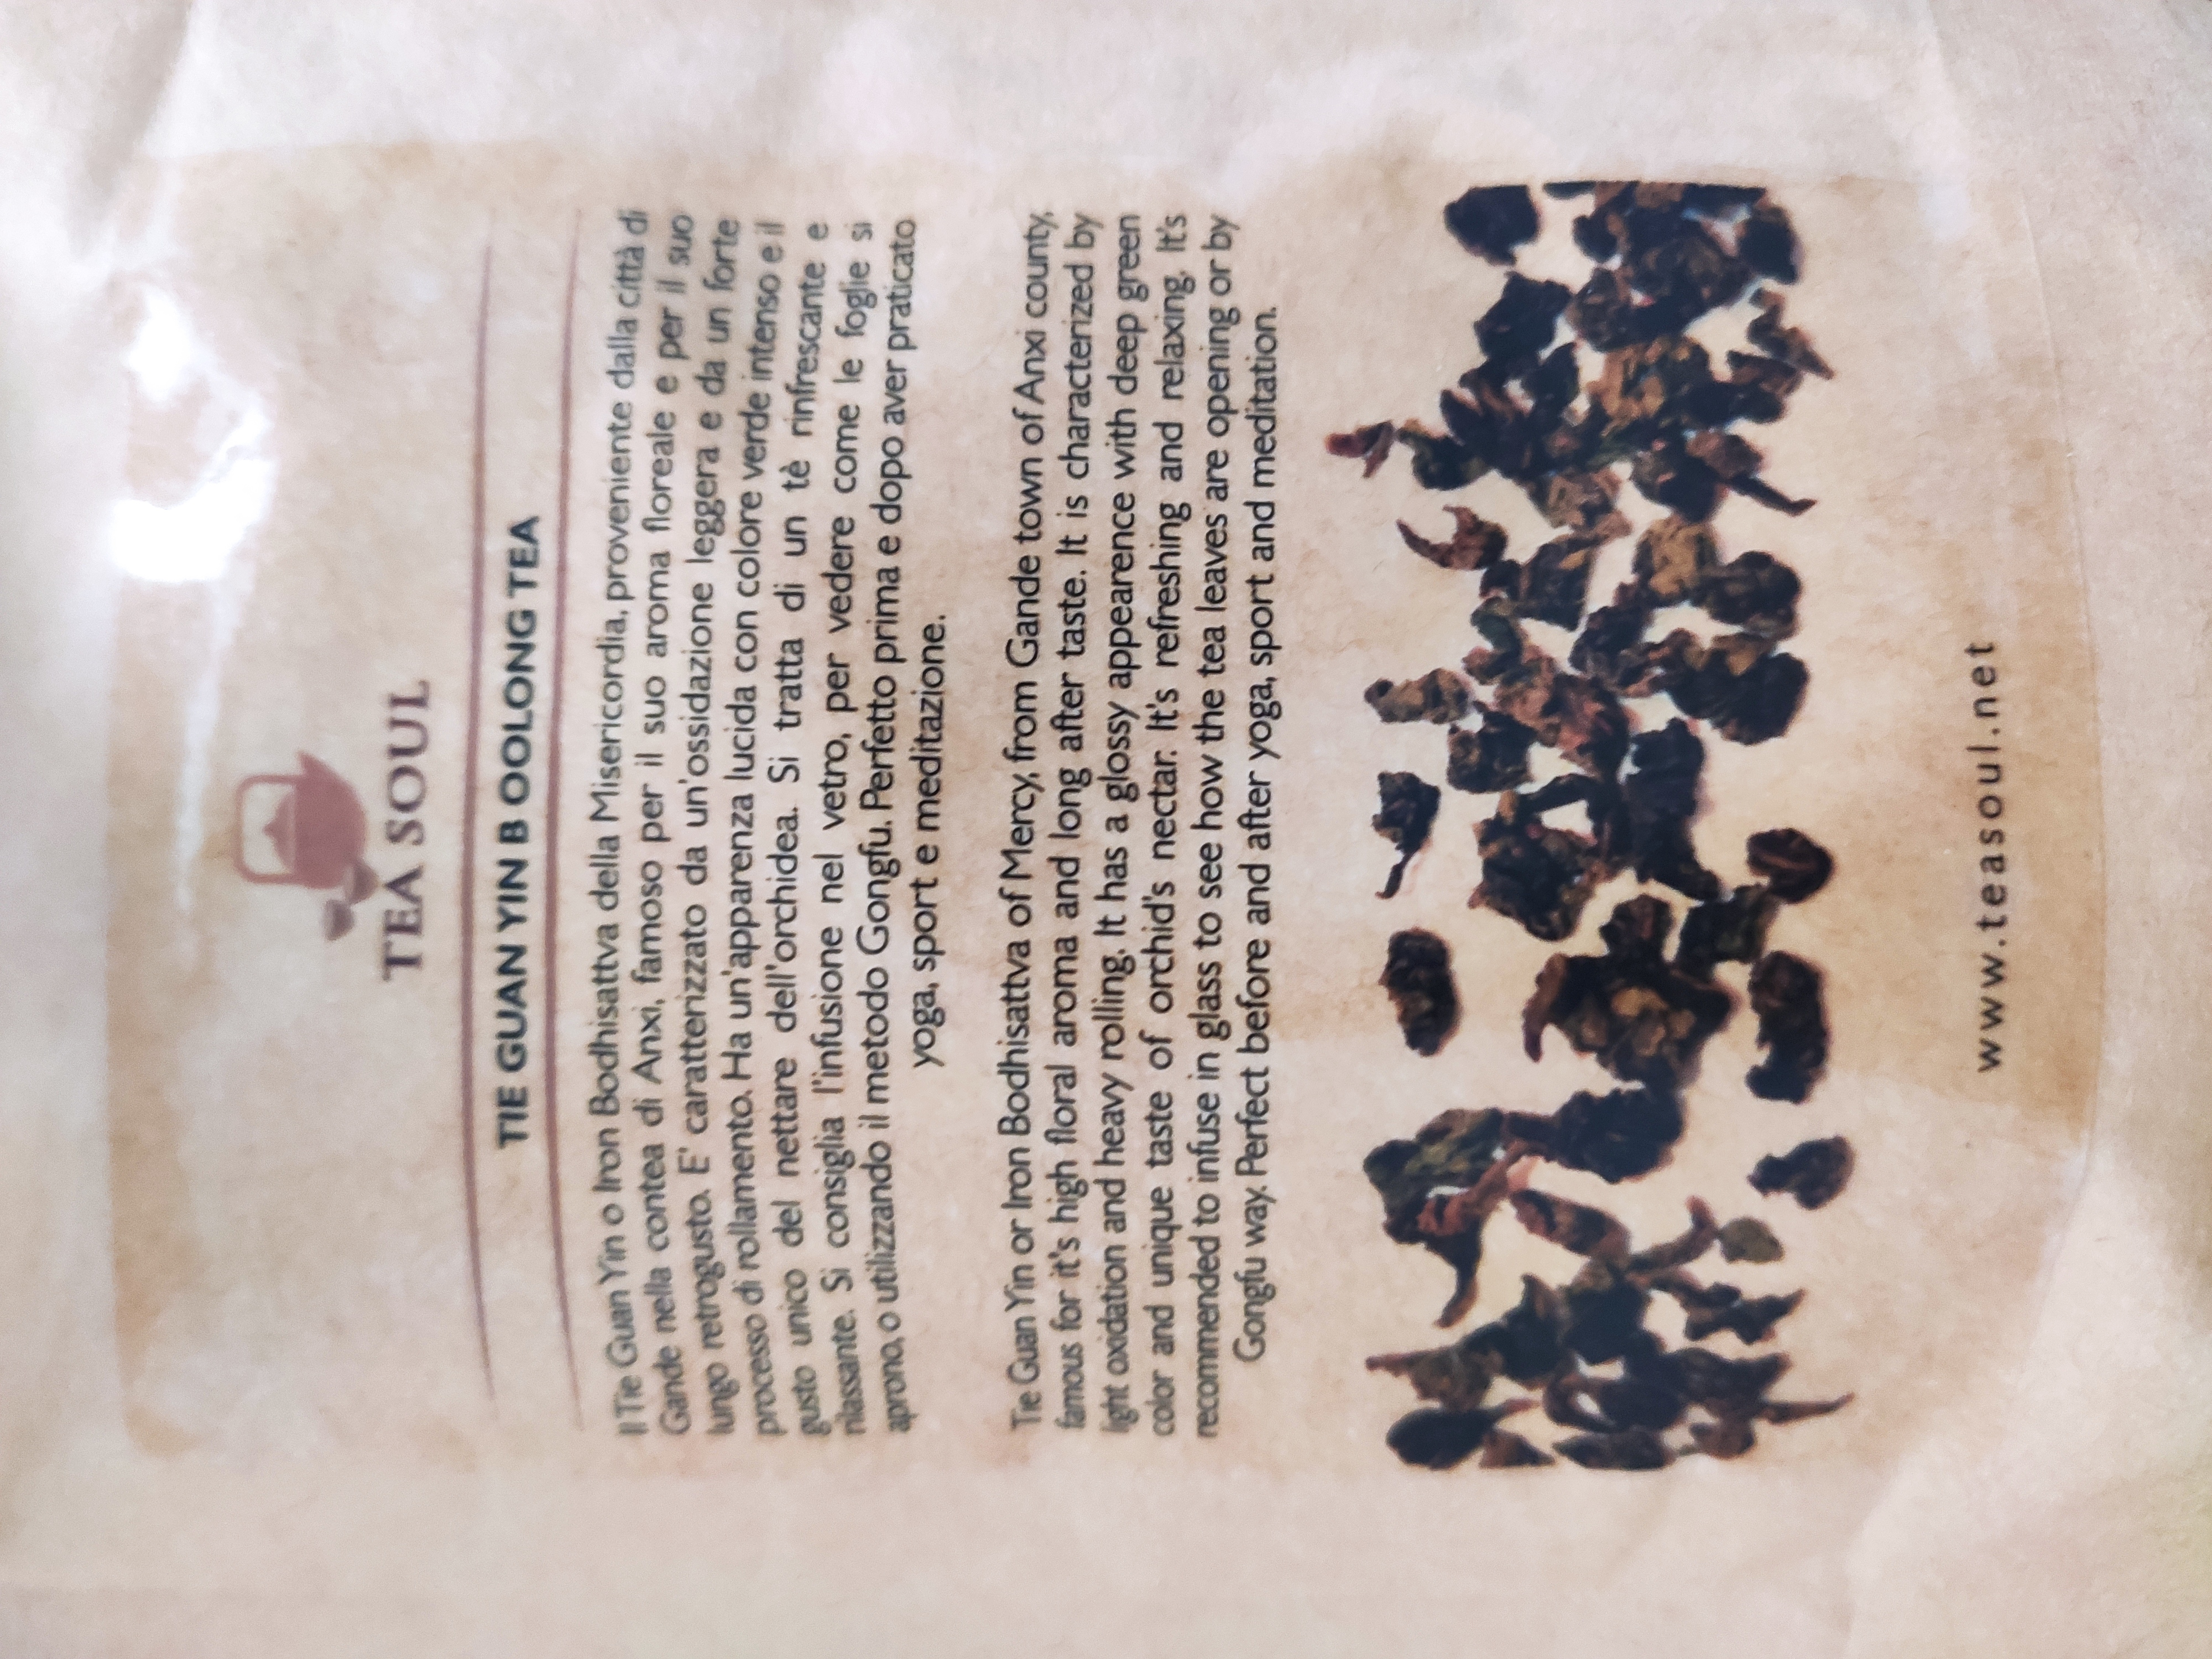 TEA SOUL
TIE GUAN YIN B OOLONG TEA
Il Tie Guan Yin o Iron Bodhisattva della Misericordia, proveniente dalla città di
Gande nella contea di Anxi, famoso per il suo aroma floreale e per il suo
lungo retrogusto. E' caratterizzato da un'ossidazione leggera e da un forte
processo di rollamento. Ha un'apparenza lucida con colore verde intenso e il
gusto unico del nettare dell'orchidea. Si tratta di un tè rinfrescante e
rilassante. Si consiglia l'infusione nel vetro, per vedere come le foglie si
aprono, o utilizzando il metodo Gongfu. Perfetto prima e dopo aver praticato
yoga, sport e meditazione.
Tie Guan Yin or Iron Bodhisattva of Mercy, from Gande town of Anxi county,
famous for it's high floral aroma and long after taste. It is characterized by
light oxidation and heavy rolling. It has a glossy appearence with deep green
color and unique taste of orchid's nectar. It's refreshing and relaxing. It's
recommended to infuse in glass to see how the tea leaves are opening or by
Gongfu way. Perfect before and after yoga, sport and meditation.
www.teasoul.net